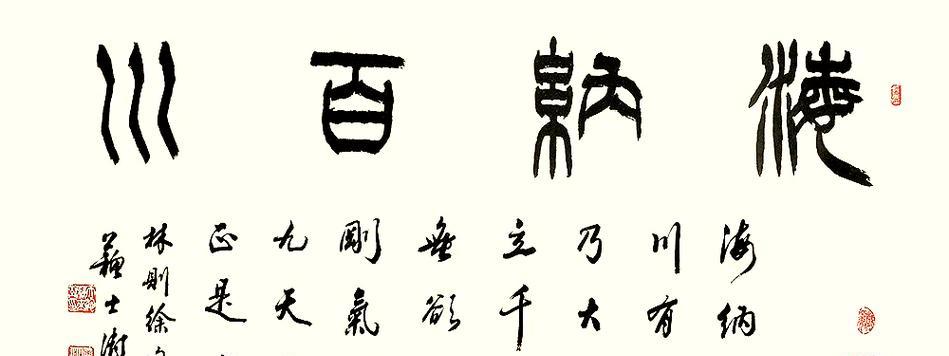 海納百川
海納
川有
乃大
立千
無欲
剛氣
九天
正是
林則徐
蘇士澍